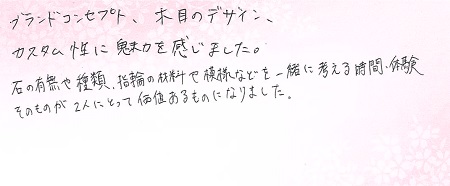 ブランドコンセプト、木目のデザイン、
カスタム性に魅力を感じました。
石の有無や種類、指輪の材料や模様などを一緒に考える時間・体験
そのものが2人にとって価値あるものになりました。